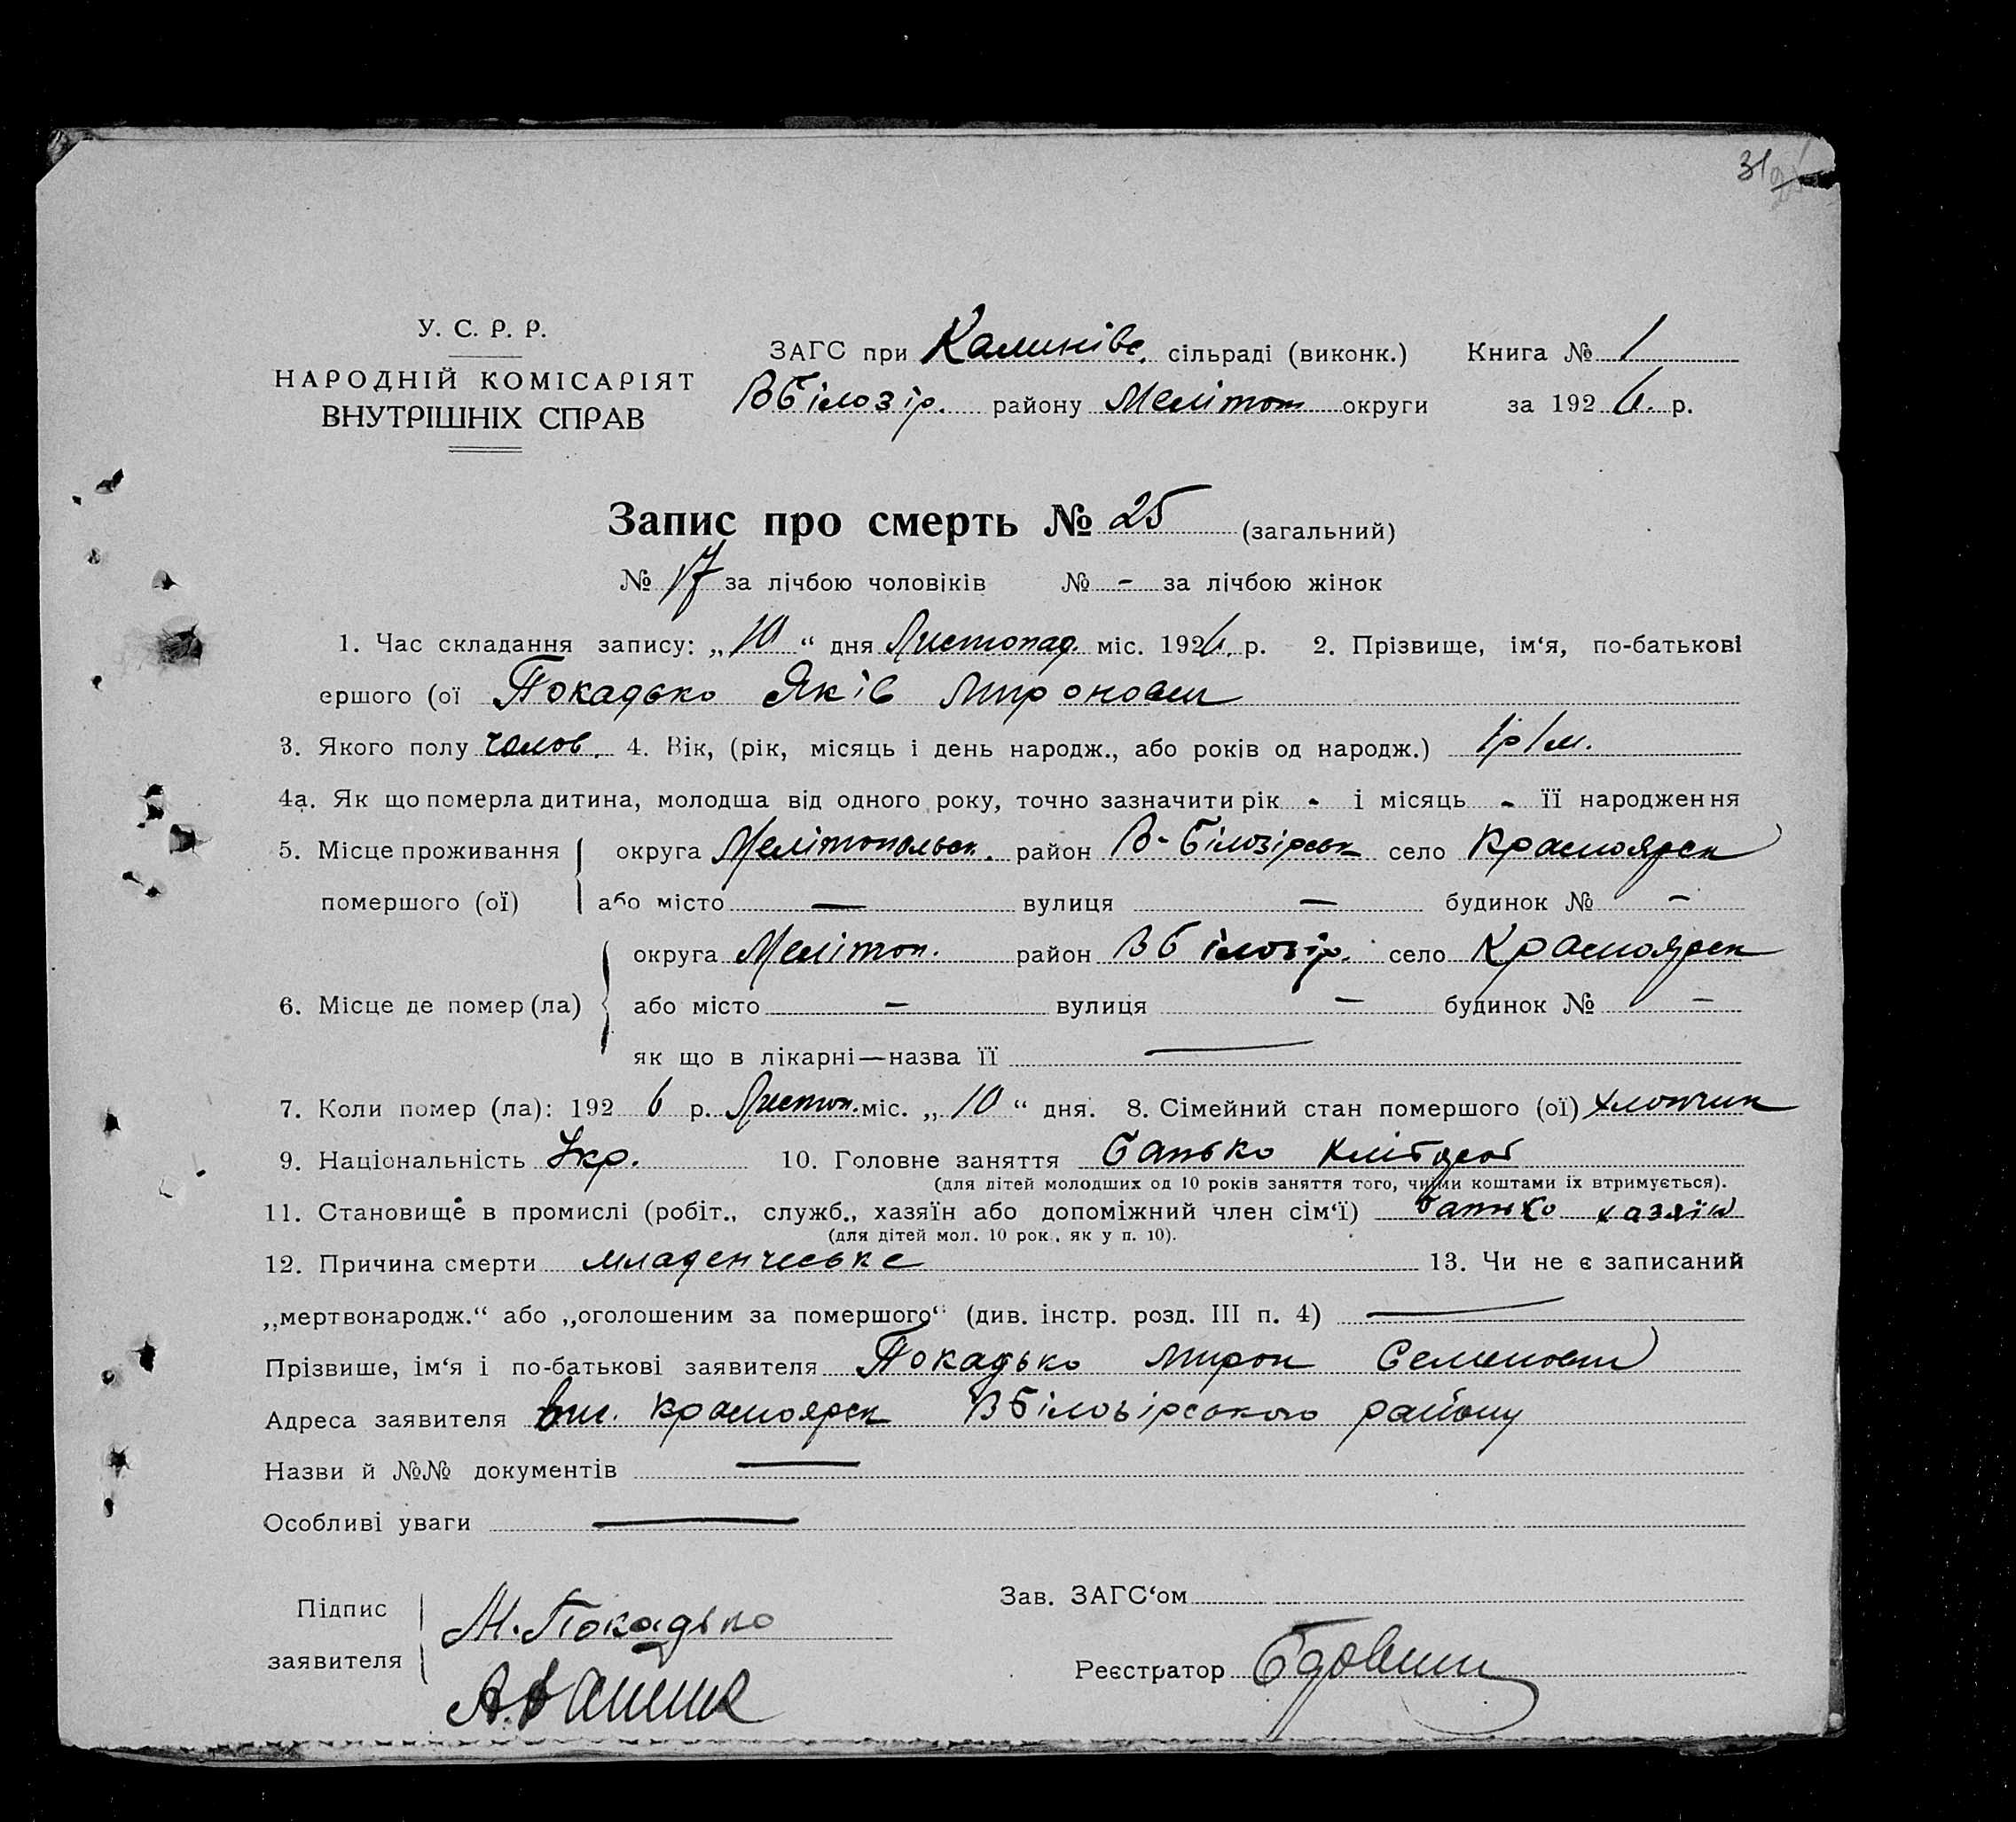 31
У. С. Р. Р.
НАРОДНІЙ КОМІСАРІЯТ
ВНУТРІШНІХ СПРАВ
ЗАГС при Калинівс. сільраді (виконк.) Книга № 1
ВБілозір. району Мелітоп округи за 1926. р.
Запис про смерть № 25 (загальний)
№ 17 за лічбою чоловіків № - за лічбою жінок
1. Час складання запису: „10“ дня Листопад. міс. 1926. р. 2. Прізвище, ім‘я, по-батькові
ершого (ої Покадько Яків Миронович
3. Якого полу чолов. 4. Вік, (рік, місяць і день народж., або років од народж.) 1р 1м.
4а. Як що померла дитина, молодша від одного року, точно зазначити рік - і місяць - її народження
5. Місце проживання округа Мелітопольськ. район В-Білозірськ село Красноярск
помершого (ої) або місто — вулиця — будинок № -
округа Мелітоп. район ВБілозір. село Красноярск
6. Місце де помер (ла) або місто — вулиця — будинок № —
як що в лікарні—назва її —
7. Коли помер (ла): 1926 р. Листоп. міс. „10“ дня. 8. Сімейний стан помершого (ої) хлопчик
9. Національність Укр. 10. Головне заняття Батько хлібороб
(для дітей молодших од 10 років заняття того, чиїми коштами їх втримується).
11. Становище в промислі (робіт., служб., хазяїн або допоміжний член сім‘ї) батько хазяїн
(для дітей мол. 10 рок., як у п. 10).
12. Причина смерти младенчеське 13. Чи не є записаний
„мертвонародж.“ або „оголошеним за помершого“ (див. інстр. розд. III п. 4) —
Прізвише, ім‘я і по-батькові заявителя Покадько Мирон Семенович
Адреса заявителя вис. Красноярск ВБілозірського району
Назви й №№ документів —
Особливі уваги —
Підпис Зав. ЗАГС‘ом
М. Покадько
заявителя Реєстратор